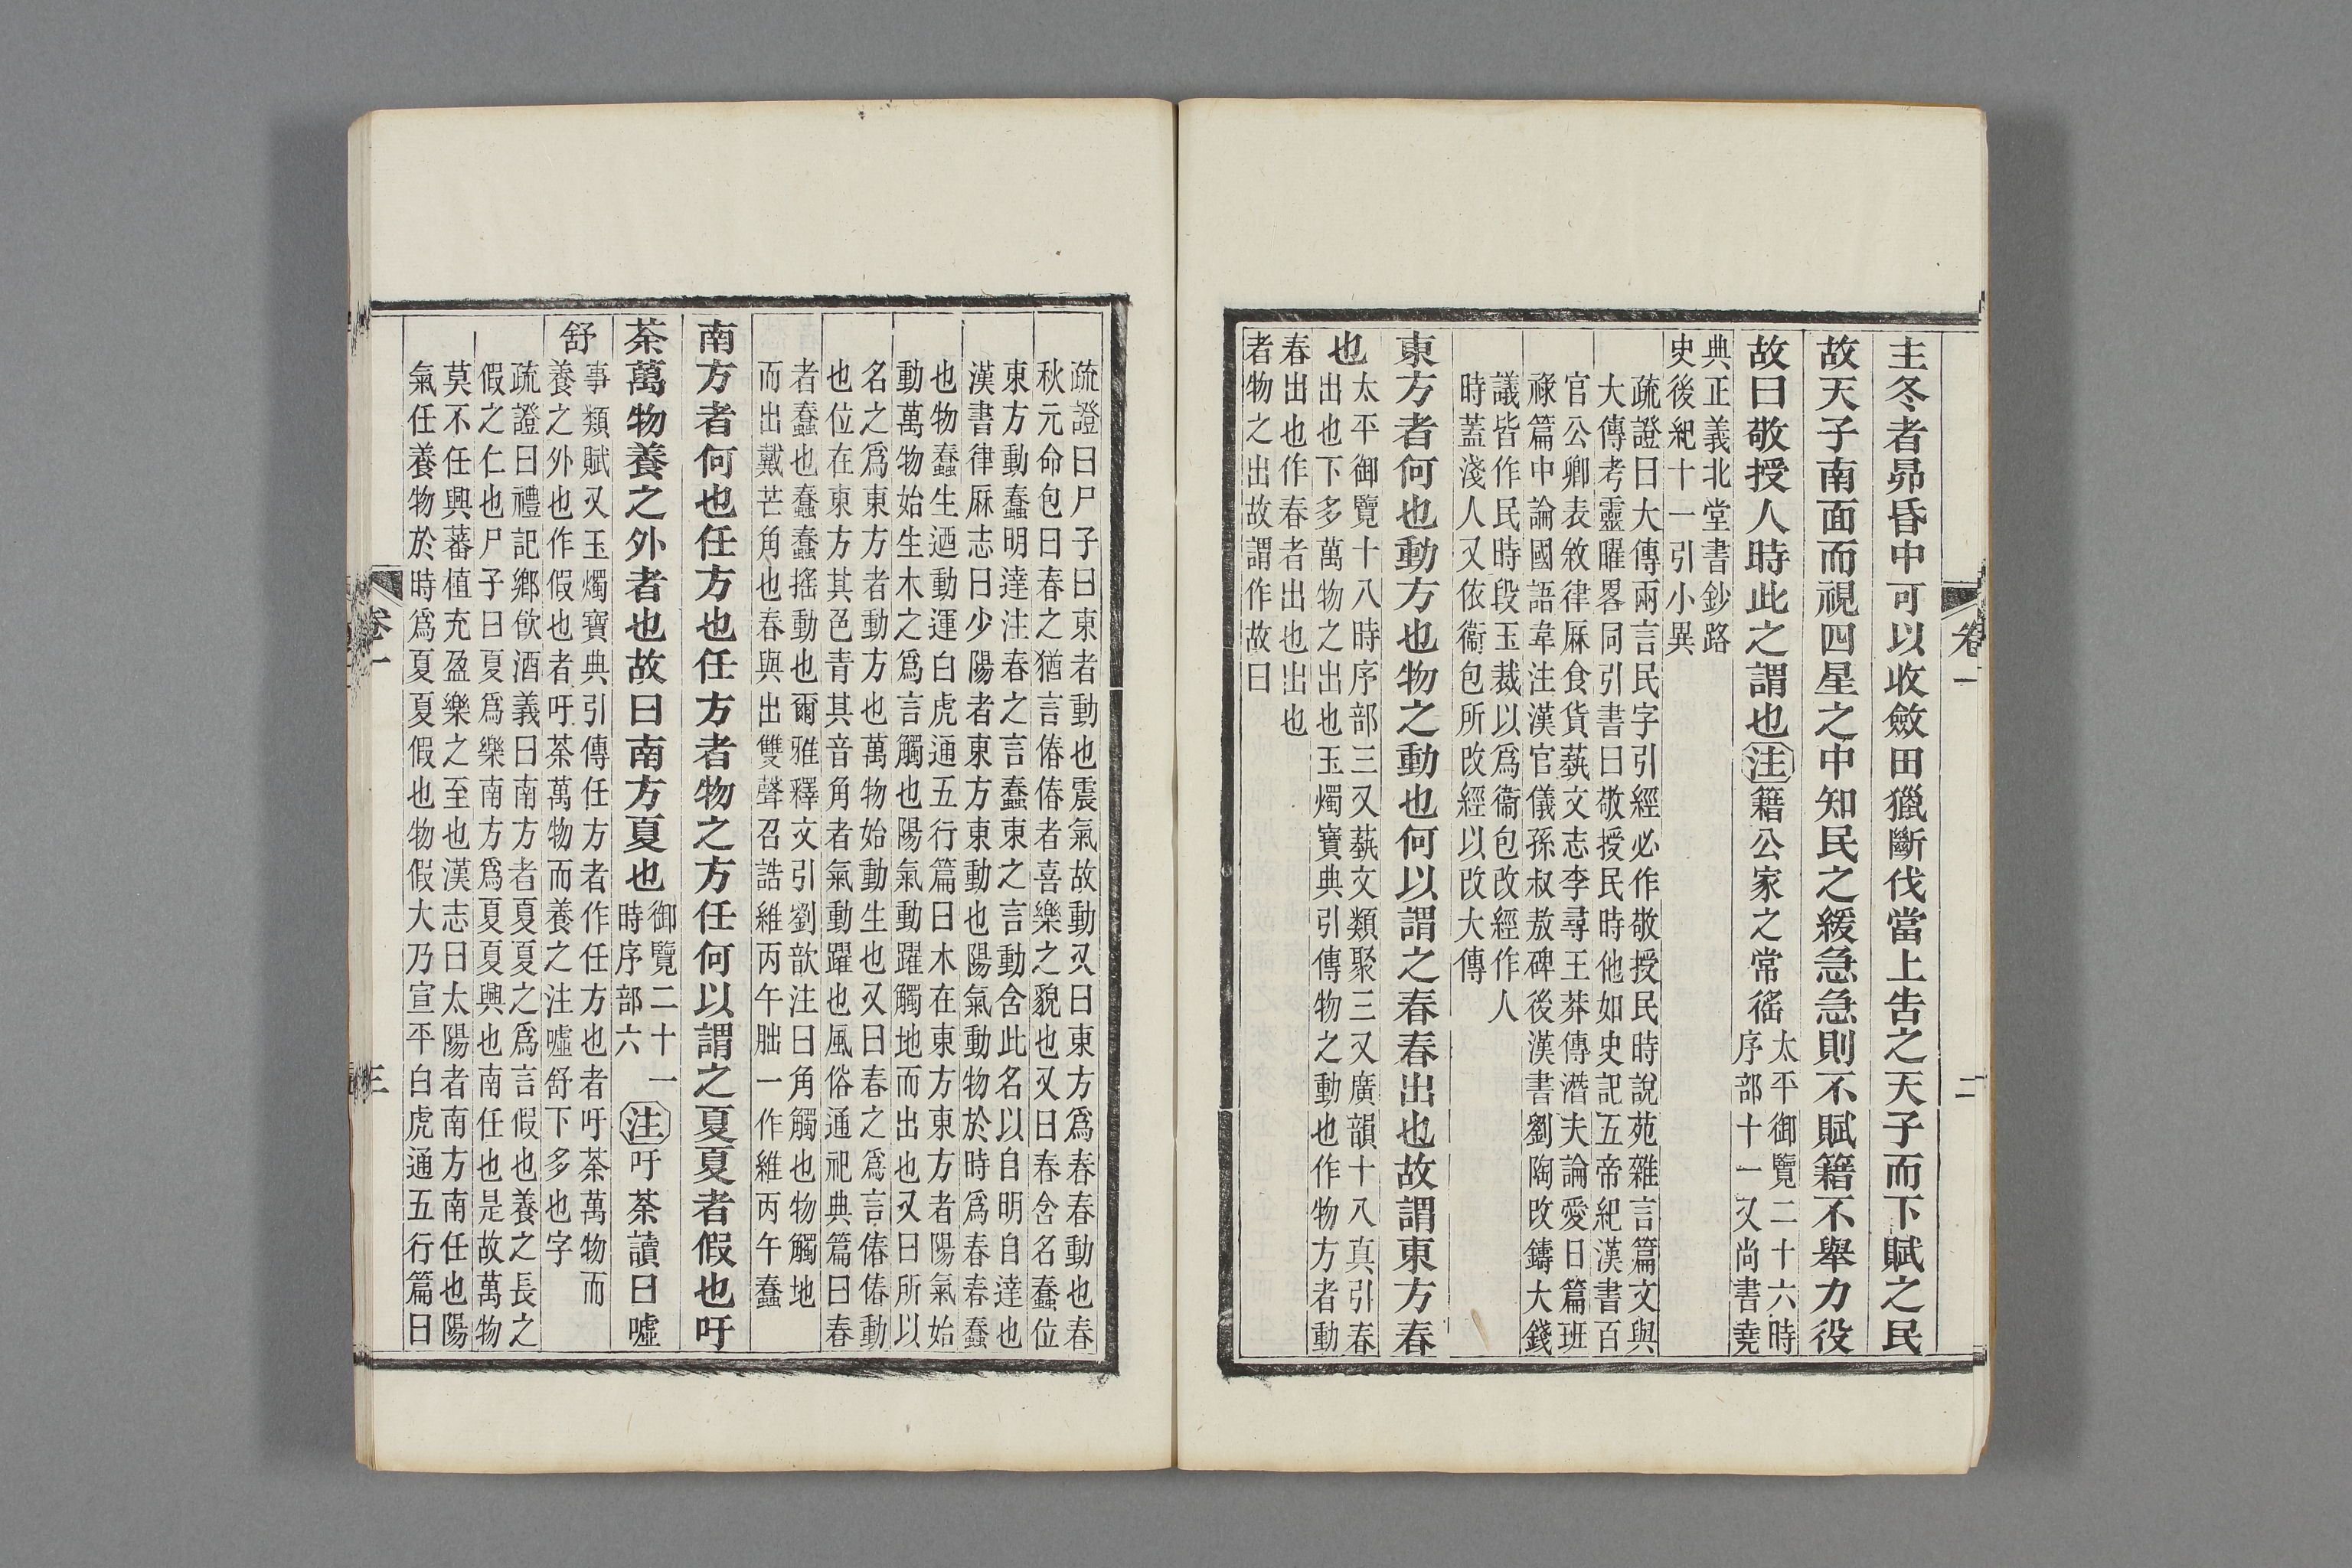 卷一
二
主冬者昴昏中可以收斂田獵斷伐當上告之天子而下賦之民
故天子南面而視四星之中知民之緩急急則不賦籍不舉力役
故曰敬授人時此之謂也注籍公家之常徭太平御覽二十六時
序部十一又尚書堯
典正義北堂書鈔路
史後紀十一引小異
疏證曰大傳兩言民字引經必作敬授民時說苑雜言篇文與
大傳考靈曜畧同引書曰敬授民時他如史記五帝紀漢書百
官公卿表敘律厤食貨蓺文志李尋王莽傳潛夫論愛日篇班
祿篇中論國語韋注漢官儀孫叔敖碑後漢書劉陶改鑄大錢
議皆作民時段玉裁以爲衞包改經作人
時蓋淺人又依衞包所改經以改大傳
東方者何也動方也物之動也何以謂之春春出也故謂東方春
也太平御覽十八時序部三又蓺文類聚三又廣韻十八真引春
出也下多萬物之出也玉燭寶典引傳物之動也作物方者動
春出也作春者出也出也
者物之出故謂作故曰
疏證曰尸子曰東者動也震氣故動又曰東方爲春春動也春
秋元命包曰春之猶言偆偆者喜樂之貌也又曰春含名蠢位
東方動蠢明達注春之言蠢東之言動含此名以自明自達也
漢書律厤志曰少陽者東方東動也陽氣動物於時爲春春蠢
也物蠢生迺動運白虎通五行篇曰木在東方東方者陽氣始
動萬物始生木之爲言觸也陽氣動躍觸地而出也又曰所以
名之爲東方者動方也萬物始動生也又曰春之爲言偆偆動
也位在東方其色青其音角者氣動躍也風俗通祀典篇曰春
者蠢也蠢蠢搖動也爾雅釋文引劉歆注曰角觸也物觸地
而出戴芒角也春與出雙聲召誥維丙午朏一作維丙午蠢
南方者何也任方也任方者物之方任何以謂之夏夏者假也吁
荼萬物養之外者也故曰南方夏也御覽二十一
時序部六注吁荼讀曰噓
舒事類賦又玉燭寶典引傳任方者作任方也者吁荼萬物而
養之外也作假也者吁荼萬物而養之注噓舒下多也字
疏證曰禮記鄉飲酒義曰南方者夏夏之爲言假也養之長之
假之仁也尸子曰夏爲樂南方爲夏夏興也南任也是故萬物
莫不任興蕃植充盈樂之至也漢志曰太陽者南方南任也陽
氣任養物於時爲夏夏假也物假大乃宣平白虎通五行篇曰
卷一
三